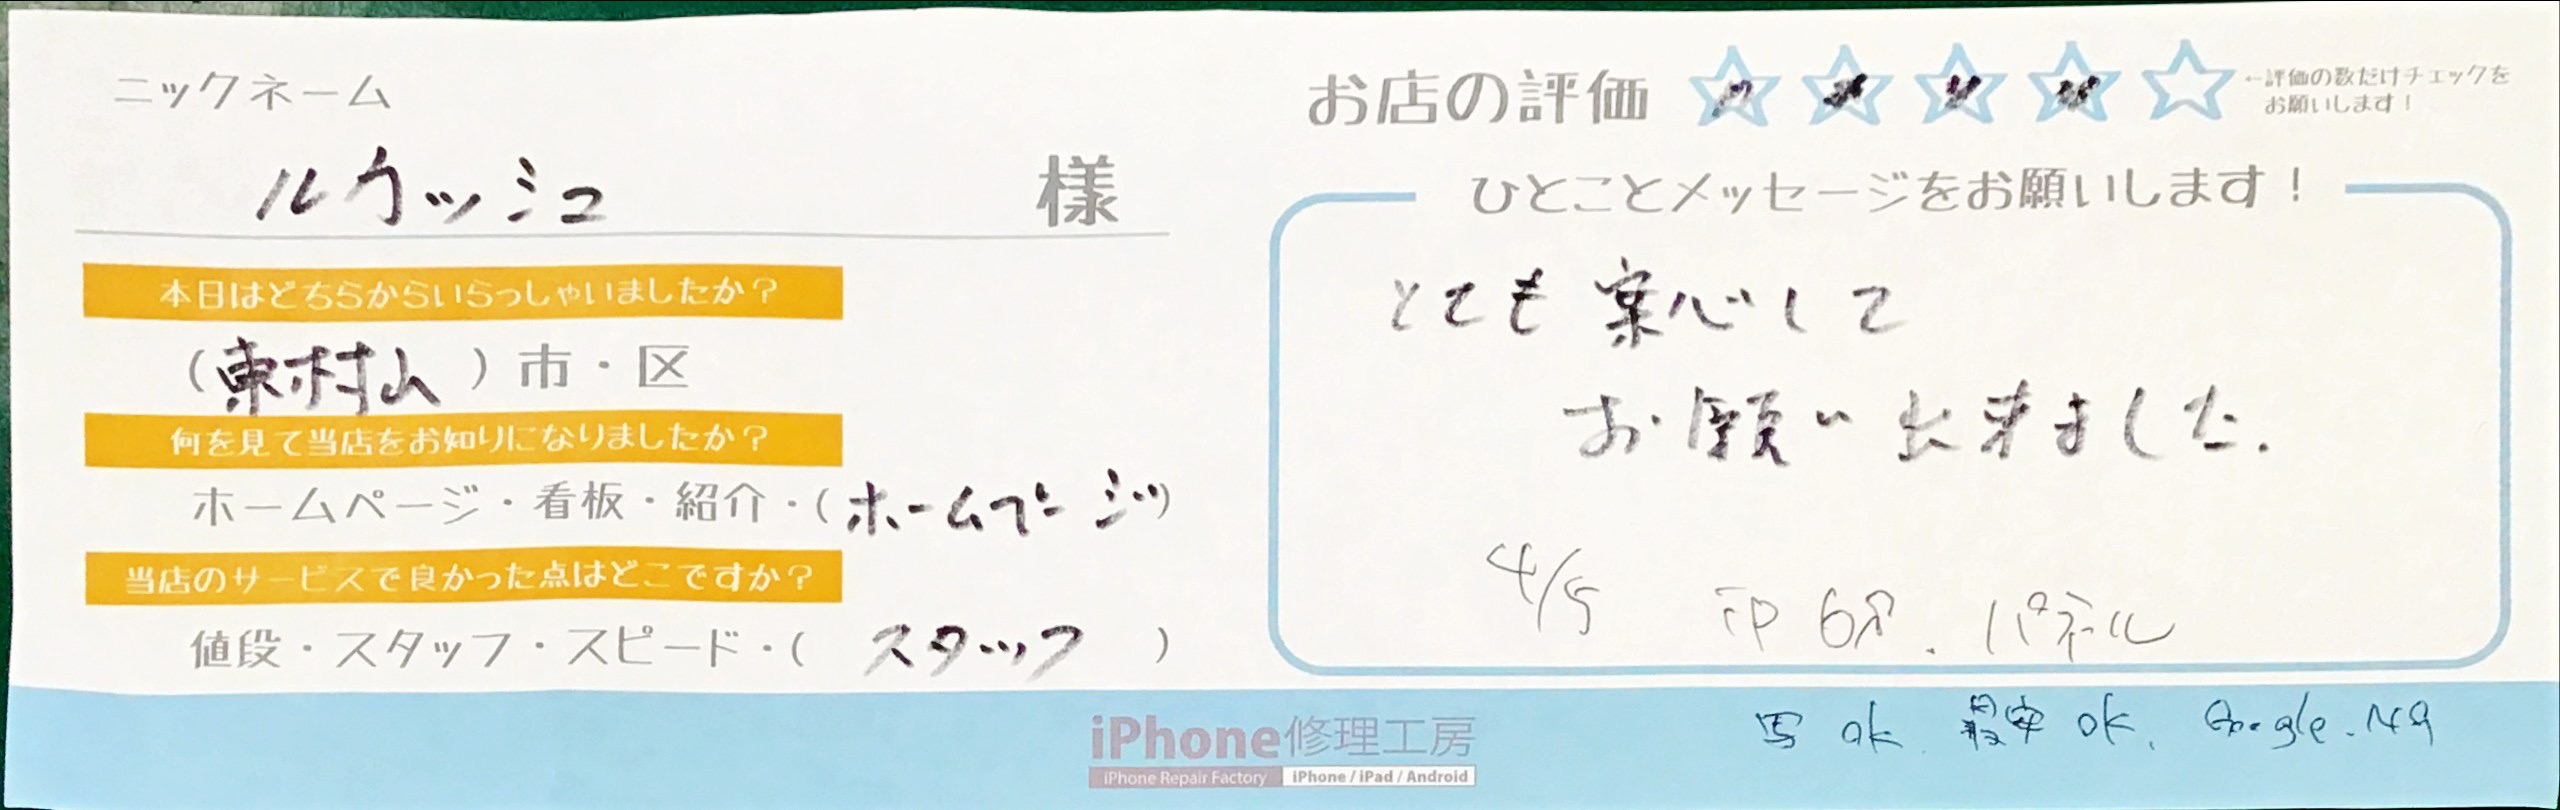 ニックネーム
ルカッシュ 様
本日はどちらからいらっしゃいましたか？
(東村山)市・区
何を見て当店をお知りになりましたか？
ホームページ・看板・紹介・(ホームページ)
当店のサービスで良かった点はどこですか？
値段・スタッフ・スピード・(スタッフ)
お店の評価
←評価の数だけチェックを
お願いします！
ひとことメッセージをお願いします！
とても安心して
お願い出来ました.
4/5 パネル
iPhone修理工房
iPhone Repair Factory iPhone / iPad / Android
写 ok. ok. Google. NG